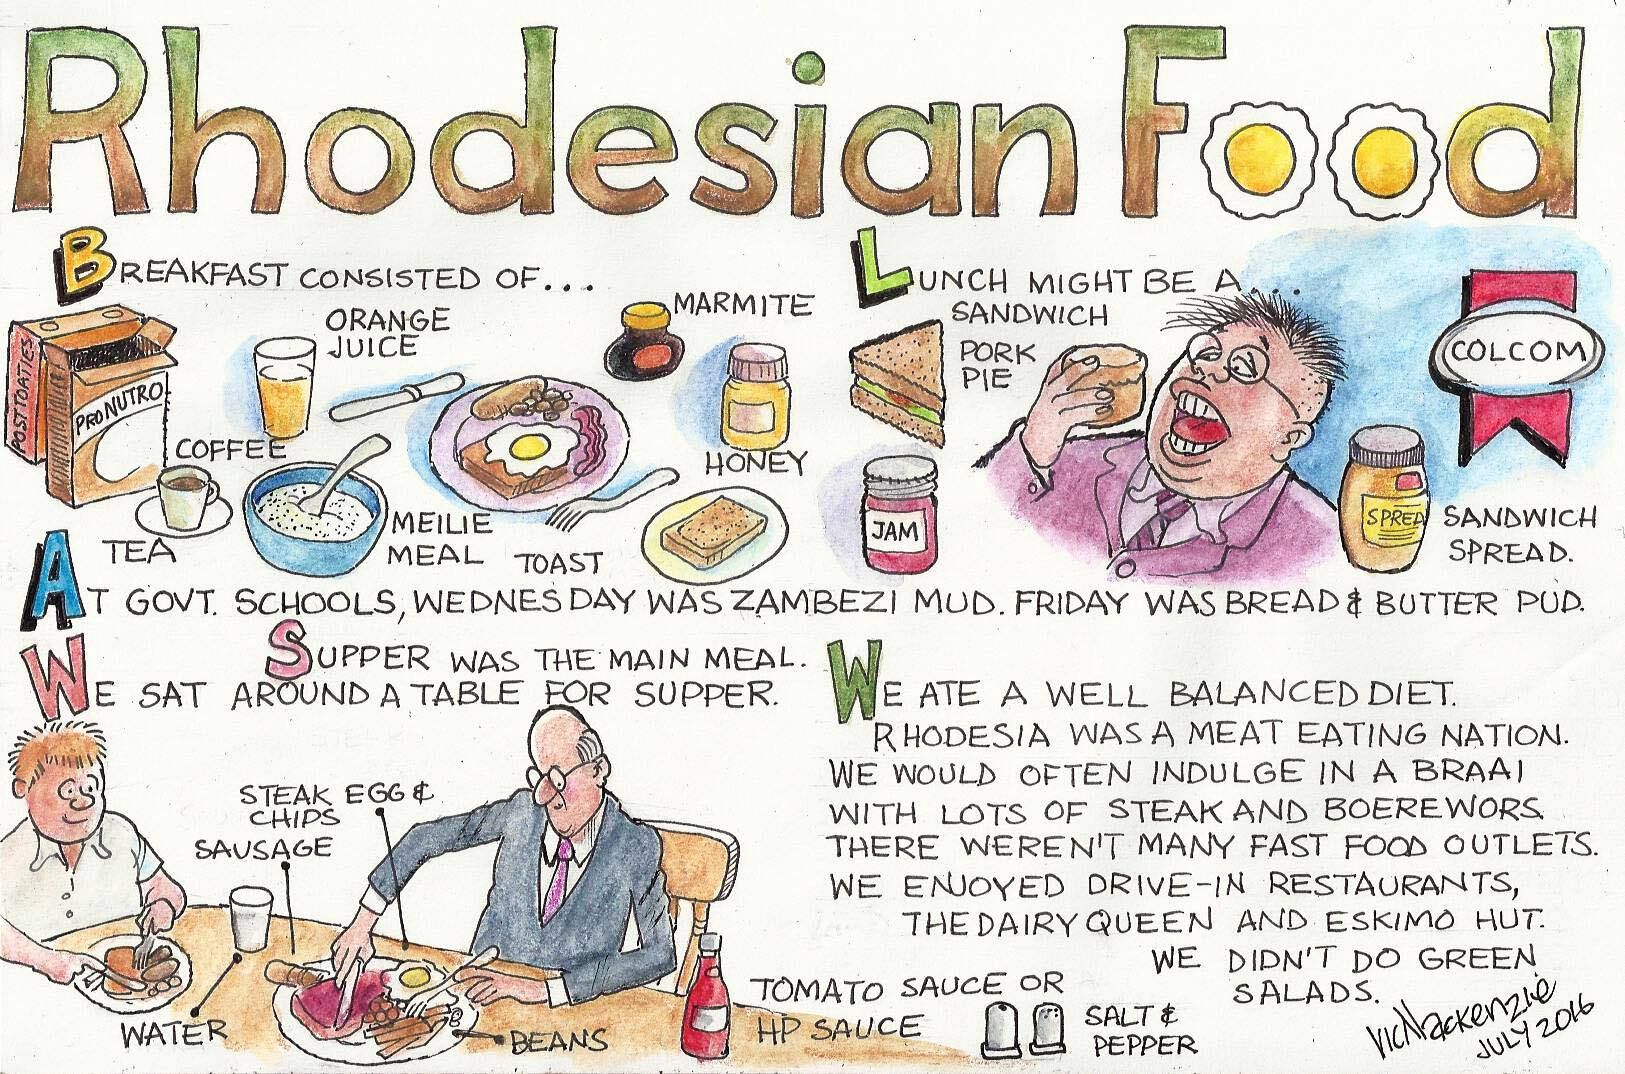 Rhodesian Food
BREAKFAST CONSISTED OF...
POST TOASTIES
PRONUTRO
ORANGE
JUICE
MARMITE
COFFEE
HONEY
TEA
MEILIE
MEAL
TOAST
LUNCH MIGHT BE A...
SANDWICH
PORK
PIE
COLCOM
JAM
SPREAD
SANDWICH
SPREAD.
AT GOVT. SCHOOLS, WEDNESDAY WAS ZAMBEZI MUD. FRIDAY WAS BREAD & BUTTER PUD.
SUPPER WAS THE MAIN MEAL.
WE SAT AROUND A TABLE FOR SUPPER.
STEAK EGG &
CHIPS
SAUSAGE
WATER
BEANS
TOMATO SAUCE OR
HP SAUCE
SALT &
PEPPER
WE ATE A WELL BALANCED DIET.
RHODESIA WAS A MEAT EATING NATION.
WE WOULD OFTEN INDULGE IN A BRAAI
WITH LOTS OF STEAK AND BOEREWORS.
THERE WEREN'T MANY FAST FOOD OUTLETS.
WE ENJOYED DRIVE-IN RESTAURANTS,
THE DAIRY QUEEN AND ESKIMO HUT.
WE DIDN'T DO GREEN
SALADS.
Vic Mackenzie
JULY 2016